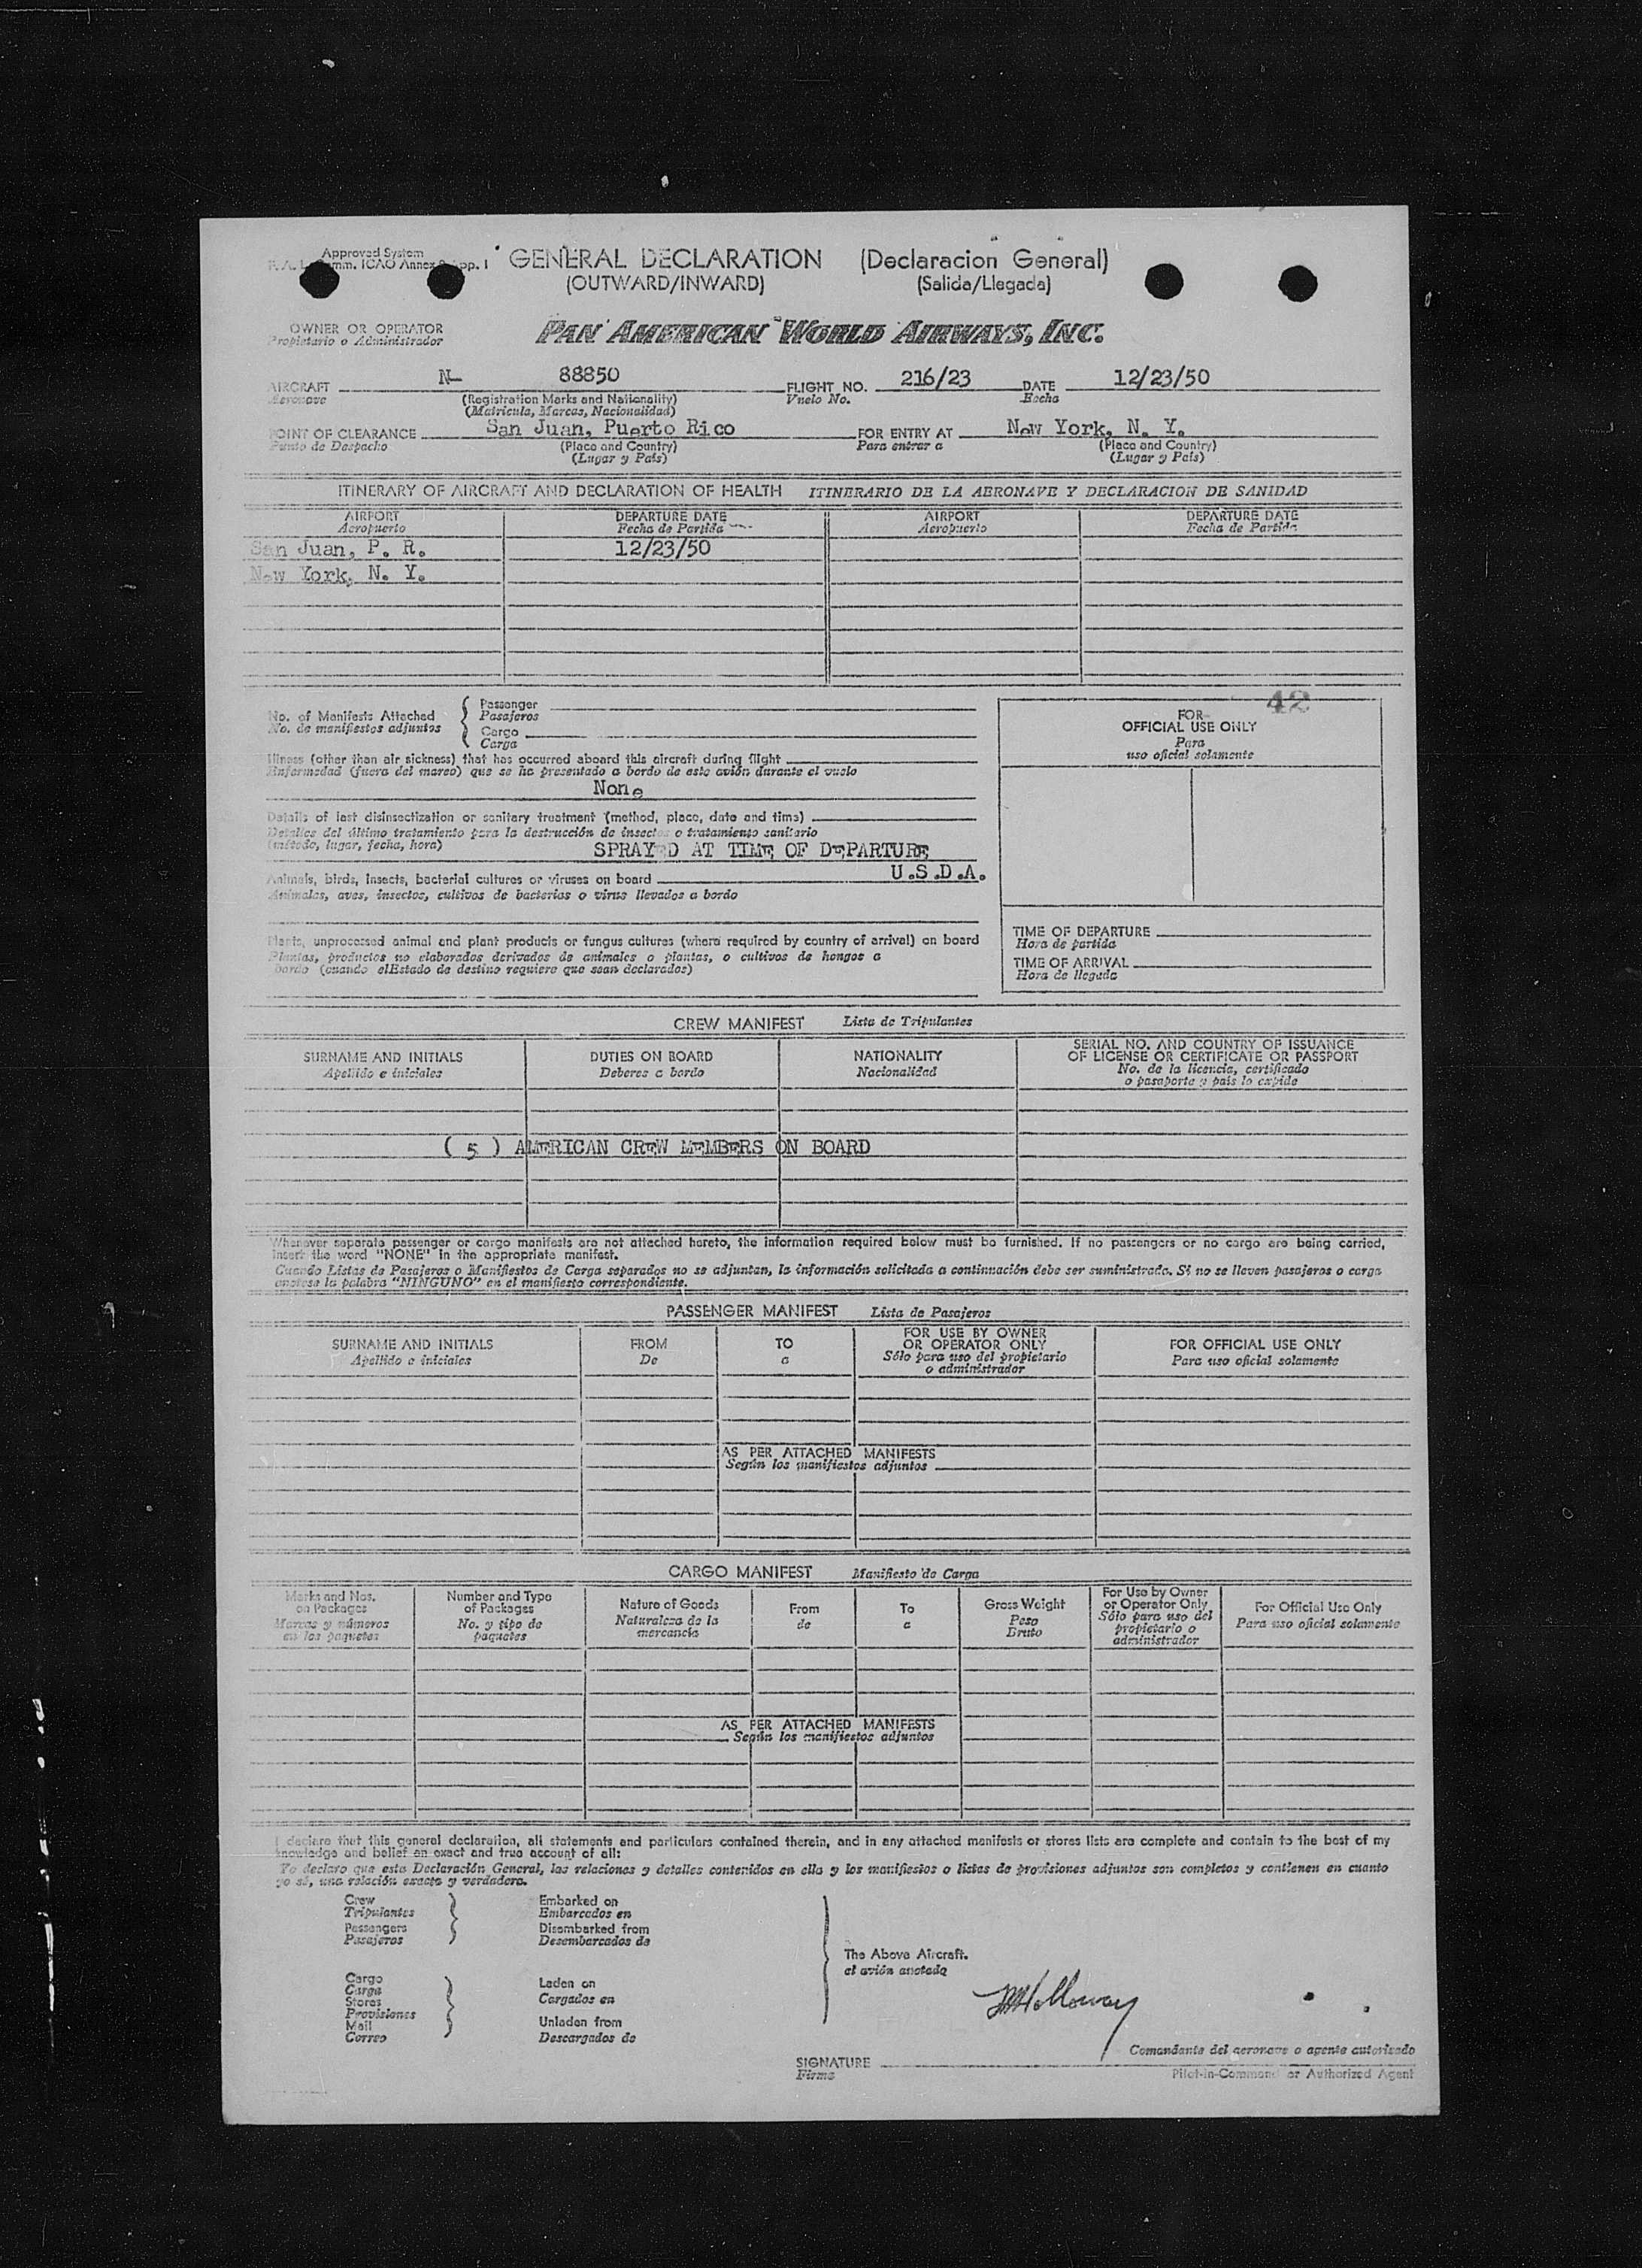 Approved System
GENERAL DECLARATION (Declaracion General)
(OUTWARD/INWARD) (Salida/Llegada)
OWNER OR OPERATOR
Propietario o Administrador
PAN AMERICAN WORLD AIRWAYS, INC.
AIRCRAFT N- 88850 FLIGHT NO. 216/23 DATE 12/23/50
Aeronave (Registration Marks and Nationality) Vuelo No. Fecha
(Matricula, Marcas, Nacionalidad)
POINT OF CLEARANCE San Juan, Puerto Rico FOR ENTRY AT New York, N. Y.
Punto de Despacho (Place and Country) Para entrar a (Place and Country)
(Lugar y País) (Lugar y País)
ITINERARY OF AIRCRAFT AND DECLARATION OF HEALTH ITINERARIO DE LA AERONAVE Y DECLARACION DE SANIDAD
AIRPORT DEPARTURE DATE AIRPORT DEPARTURE DATE
Aeropuerto Fecha de Partida Aeropuerto Fecha de Partida
San Juan, P. R. 12/23/50
New York, N. Y.
42
No. of Manifests Attached
No. de manifiestos adjuntos
Passenger
Pasajeros
Cargo
Carga
FOR
OFFICIAL USE ONLY
Para
uso oficial solamente
Illness (other than air sickness) that has occurred aboard this aircraft during flight
Enfermedad (fuera del mareo) que se ha presentado a bordo de este avión durante el vuelo
None
Details of last disinsectization or sanitary treatment (method, place, date and time)
Detalles del último tratamiento para la destrucción de insectos o tratamiento sanitario
(método, lugar, fecha, hora)
SPRAYED AT TIME OF DEPARTURE
Animals, birds, insects, bacterial cultures or viruses on board U.S.D.A.
Animales, aves, insectos, cultivos de bacterias o virus llevados a bordo
Plants, unprocessed animal and plant products or fungus cultures (where required by country of arrival) on board
Plantas, productos no elaborados derivados de animales o plantas, o cultivos de hongos a
bordo (cuando elEstado de destino requiere que sean declarados)
TIME OF DEPARTURE
Hora de partida
TIME OF ARRIVAL
Hora de llegada
CREW MANIFEST Lista de Tripulantes
SURNAME AND INITIALS DUTIES ON BOARD NATIONALITY SERIAL NO. AND COUNTRY OF ISSUANCE
OF LICENSE OR CERTIFICATE OR PASSPORT
Apellido e iniciales Deberes a bordo Nacionalidad No. de la licencia, certificado
o pasaporte y país lo expide
( 5 ) AMERICAN CREW MEMBERS ON BOARD
Whenever separate passenger or cargo manifests are not attached hereto, the information required below must be furnished. If no passengers or no cargo are being carried,
insert the word "NONE" in the appropriate manifest.
Cuando Listas de Pasajeros o Manifiestos de Carga separados no se adjuntan, la información solicitada a continuación debe ser suministrada. Si no se lleven pasajeros o carga
anótese la palabra "NINGUNO" en el manifiesto correspondiente.
PASSENGER MANIFEST Lista de Pasajeros
SURNAME AND INITIALS FROM TO FOR USE BY OWNER
OR OPERATOR ONLY FOR OFFICIAL USE ONLY
Apellido e iniciales De a Sólo para uso del propietario
o administrador Para uso oficial solamente
AS PER ATTACHED MANIFESTS
Según los manifiestos adjuntos
CARGO MANIFEST Manifiesto de Carga
Marks and Nos.
on Packages
Marcas y números
en los paquetes
Number and Type
of Packages
No. y tipo de
paquetes
Nature of Goods
Naturaleza de la
mercancia
From
de
To
a
Gross Weight
Peso
Bruto
For Use by Owner
or Operator Only
Sólo para uso del
propietario o
administrador
For Official Use Only
Para uso oficial solamente
AS PER ATTACHED MANIFESTS
Según los manifiestos adjuntos
I declare that this general declaration, all statements and particulars contained therein, and in any attached manifests or stores lists are complete and contain to the best of my
knowledge and belief an exact and true account of all:
Yo declaro que esta Declaración General, las relaciones y detalles contenidos en ella y los manifiestos o listas de provisiones adjuntos son completos y contienen en cuanto
yo sé, una relación exacta y verdadera.
Crew
Tripulantes
Passengers
Pasajeros
Embarked on
Embarcados en
Disembarked from
Desembarcados de
The Above Aircraft.
el avión anotado
Cargo
Carga
Stores
Provisiones
Mail
Correo
Laden on
Cargados en
Unladen from
Descargados de
Holloway
Comandante del aeronave o agente autorizado
SIGNATURE
Firma
Pilot-in-Command or Authorized Agent